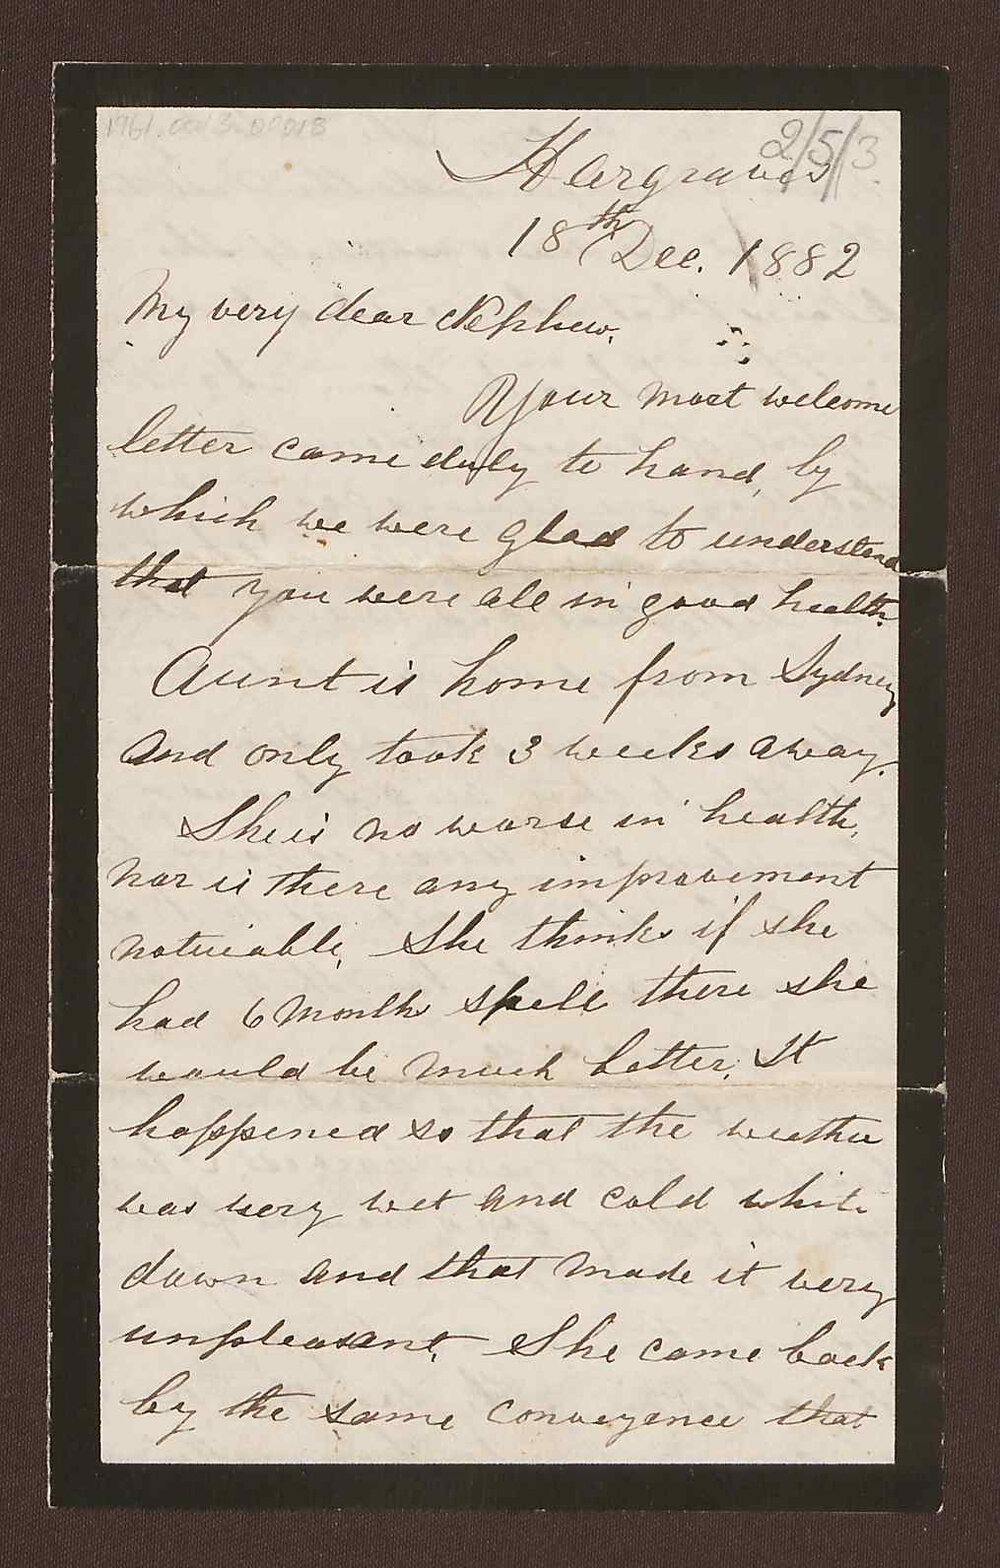 1961.0013.00018
2/5/3
Hargraves
18th Dec. 1882
My very dear Nephew,
Your most welcome
letter came duly to hand, by
which we were glad to understand
that you were all in good health.
Aunt is home from Sydney
and only took 3 weeks away.
She is no worse in health,
nor is there any improvement
noticiable, She thinks if she
had 6 Months spell there she
would be much better, It
happened so that the weather
was very wet and cold while
down and that made it very
unpleasant, She came back
by the same conveyence that